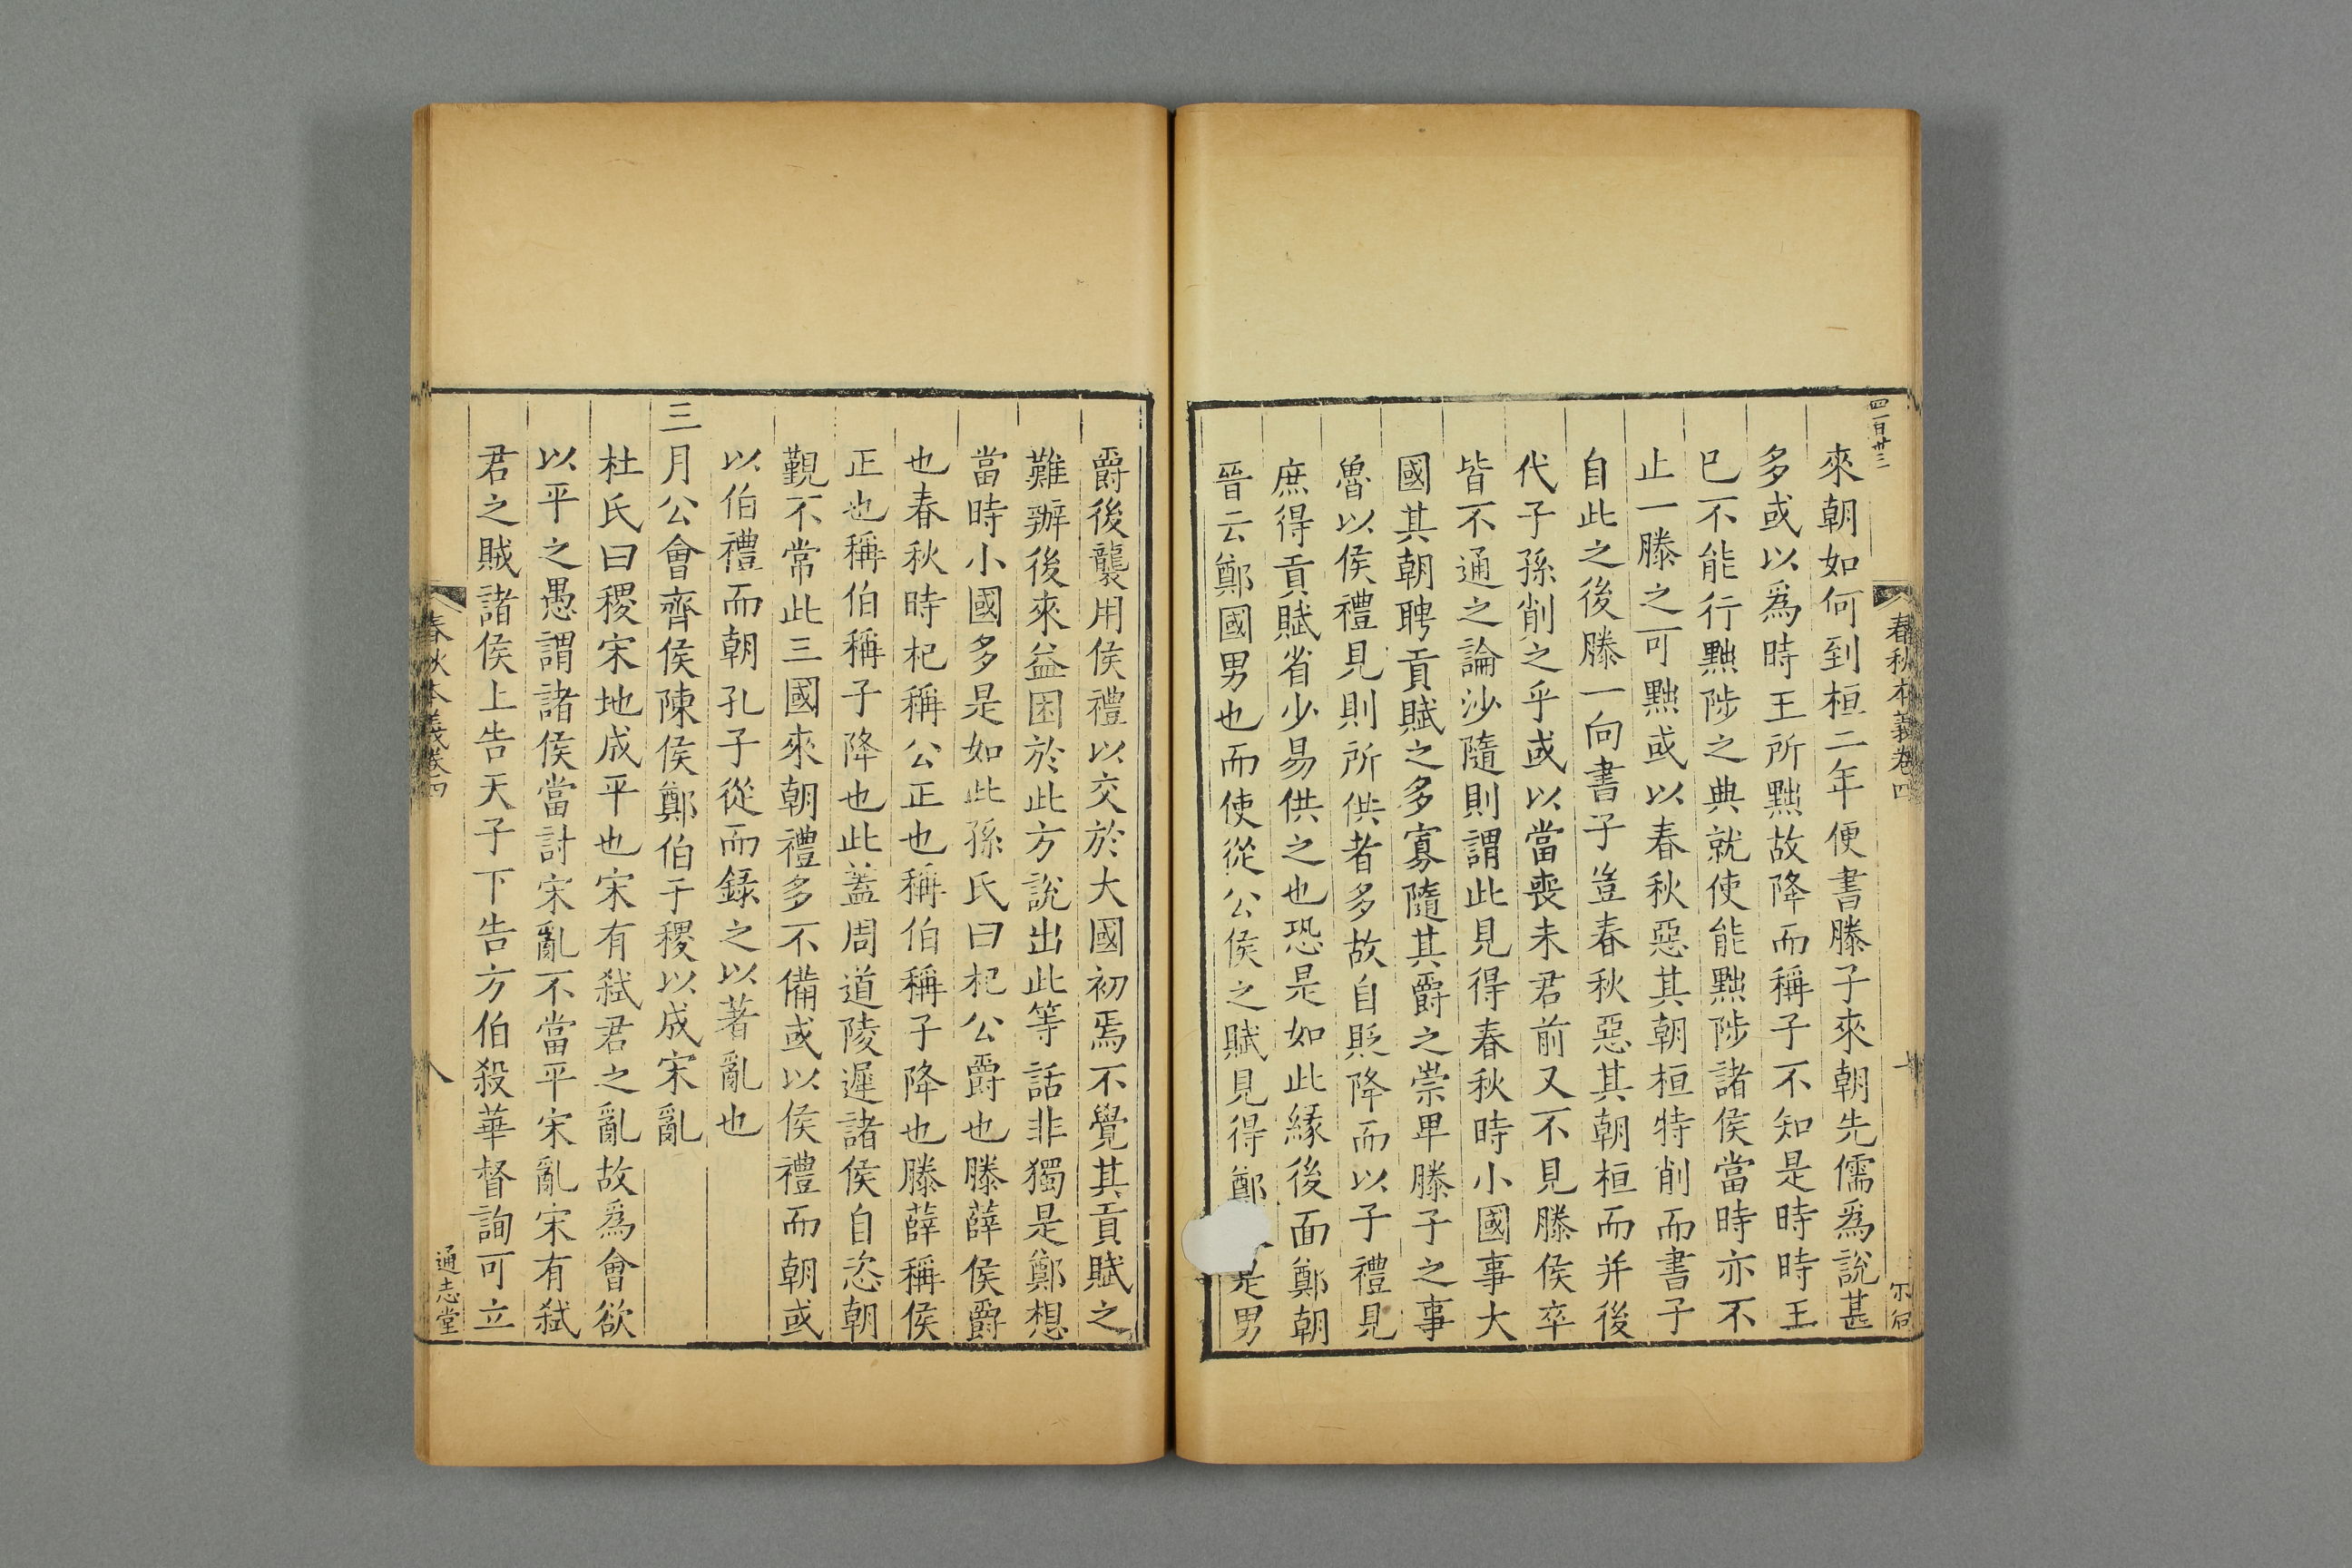 四百廿三
春秋本義卷四
來朝如何到桓二年便書滕子來朝先儒爲說甚
多或以爲時王所黜故降而稱子不知是時時王
已不能行黜陟之典就使能黜陟諸侯當時亦不
止一滕之可黜或以春秋惡其朝桓特削而書子
自此之後滕一向書子豈春秋惡其朝桓而并後
代子孫削之乎或以當喪未君前又不見滕侯卒
皆不通之論沙隨則謂此見得春秋時小國事大
國其朝聘貢賦之多寡隨其爵之崇卑滕子之事
魯以侯禮見則所供者多故自貶降而以子禮見
庶得貢賦省少易供之也恐是如此縁後面鄭朝
晉云鄭國男也而使從公侯之賦見得鄭是男
爵後襲用侯禮以交於大國初焉不覺其貢賦之
難辦後來益困於此方說出此等話非獨是鄭想
當時小國多是如此孫氏曰杞公爵也滕薛侯爵
也春秋時杞稱公正也稱伯稱子降也滕薛稱侯
正也稱伯稱子降也此蓋周道陵遲諸侯自恣朝
覲不常此三國來朝禮多不備或以侯禮而朝或
以伯禮而朝孔子從而錄之以著亂也
三月公會齊侯陳侯鄭伯于稷以成宋亂
杜氏曰稷宋地成平也宋有弑君之亂故爲會欲
以平之愚謂諸侯當討宋亂不當平宋亂宋有弑
君之賊諸侯上告天子下告方伯殺華督詢可立
春秋本義卷四
八
通志堂